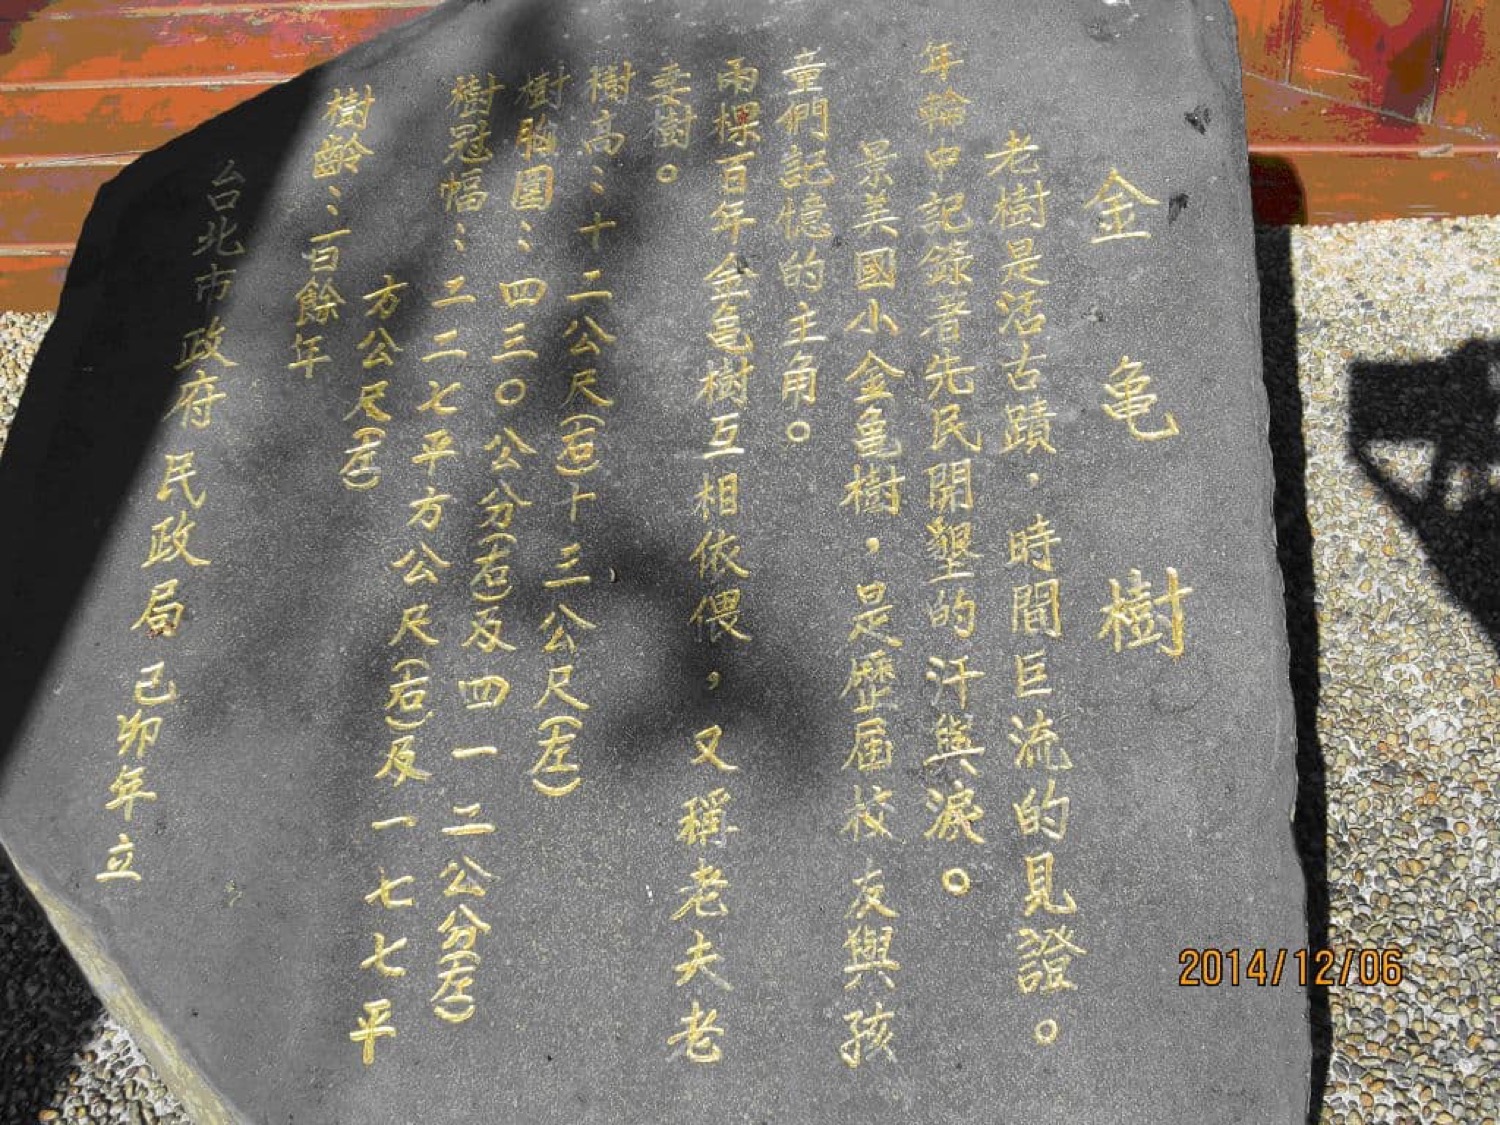 金龜樹
老樹是活古蹟，時間巨流的見證。
年輪中記錄著先民開墾的汗與淚。
景美國小金龜樹，是歷屆校友與孩
童們記憶的主角。
兩棵百年金龜樹互相依偎，又稱老夫老
妻樹。
樹高：十二公尺(右)十三公尺(左)
樹胸圍：四三〇公分(右)及四一二公分(左)
樹冠幅：二二七平方公尺(右)及一七七平
方公尺(左)
樹齡：二百餘年
台北市政府民政局己卯年立
2014/12/06